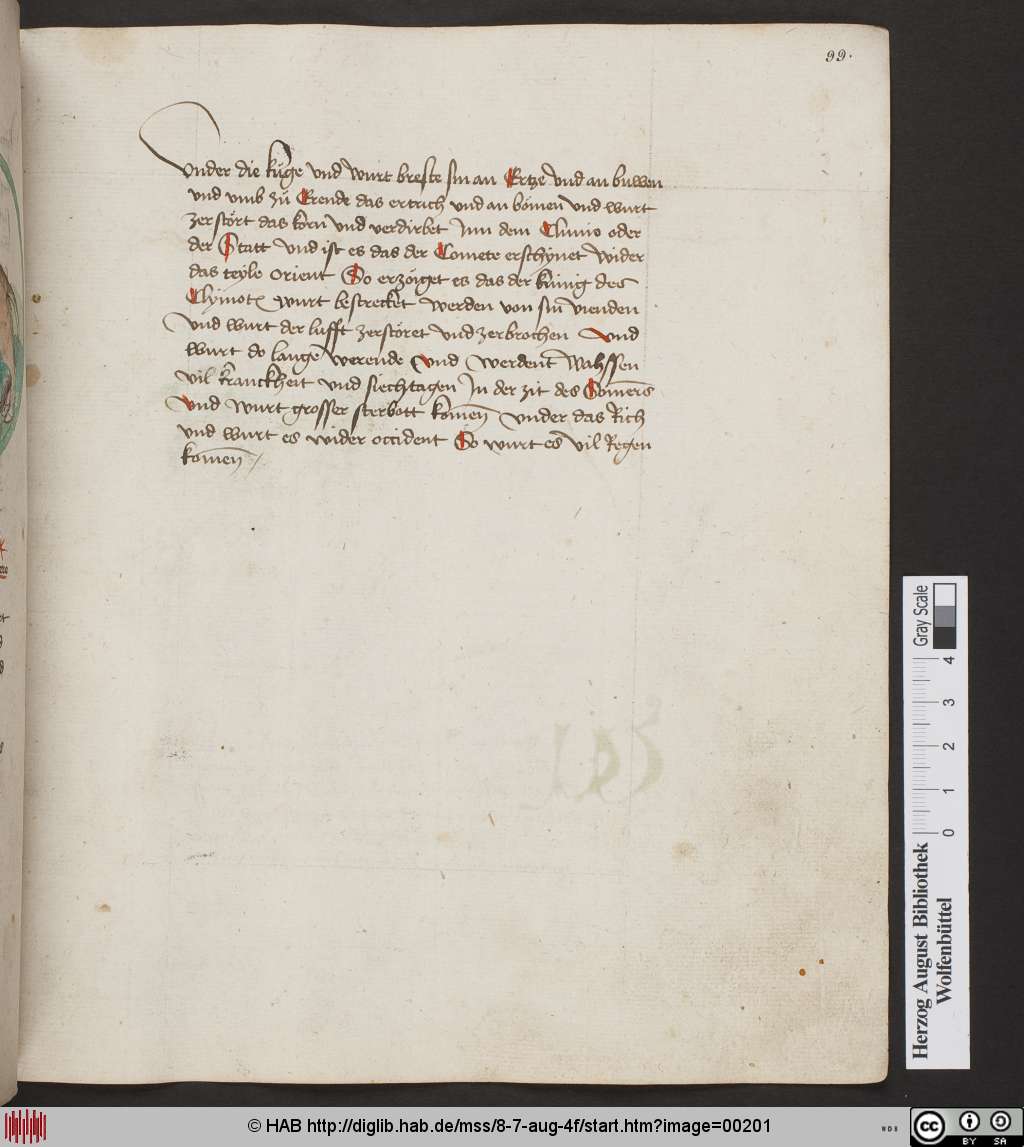 99.
Vnder die kůge vnd wurt breste sin an Ertze vnd an buwen
vnd vmb zů Erende das ertrich vnd an bömen vnd wurt
zerstört das korn vnd verdirbet Inn dem Clinio oder
der Statt vnd ist es das der Comete erschynet wider
das teyle orient So erzöiget es das der künig des
Clymotz wurt bestrecket werden von sin vienden
vnd wurt der lufft zerstöret vnd zerbrochen vnd
wurt do lange werende vnd werdent wahssen
vil kranckheit vnd siechtagen In der zit des Som̄ers
vnd wurt grosser sterbott kom̄en vnder das Rich
vnd wurt es wider occident So wurt es vil Regen
kom̄en
Gray Scale
0 1 2 3 4
Herzog August Bibliothek
Wolfenbüttel
© HAB http://diglib.hab.de/mss/8-7-aug-4f/start.htm?image=00201
cc BY SA